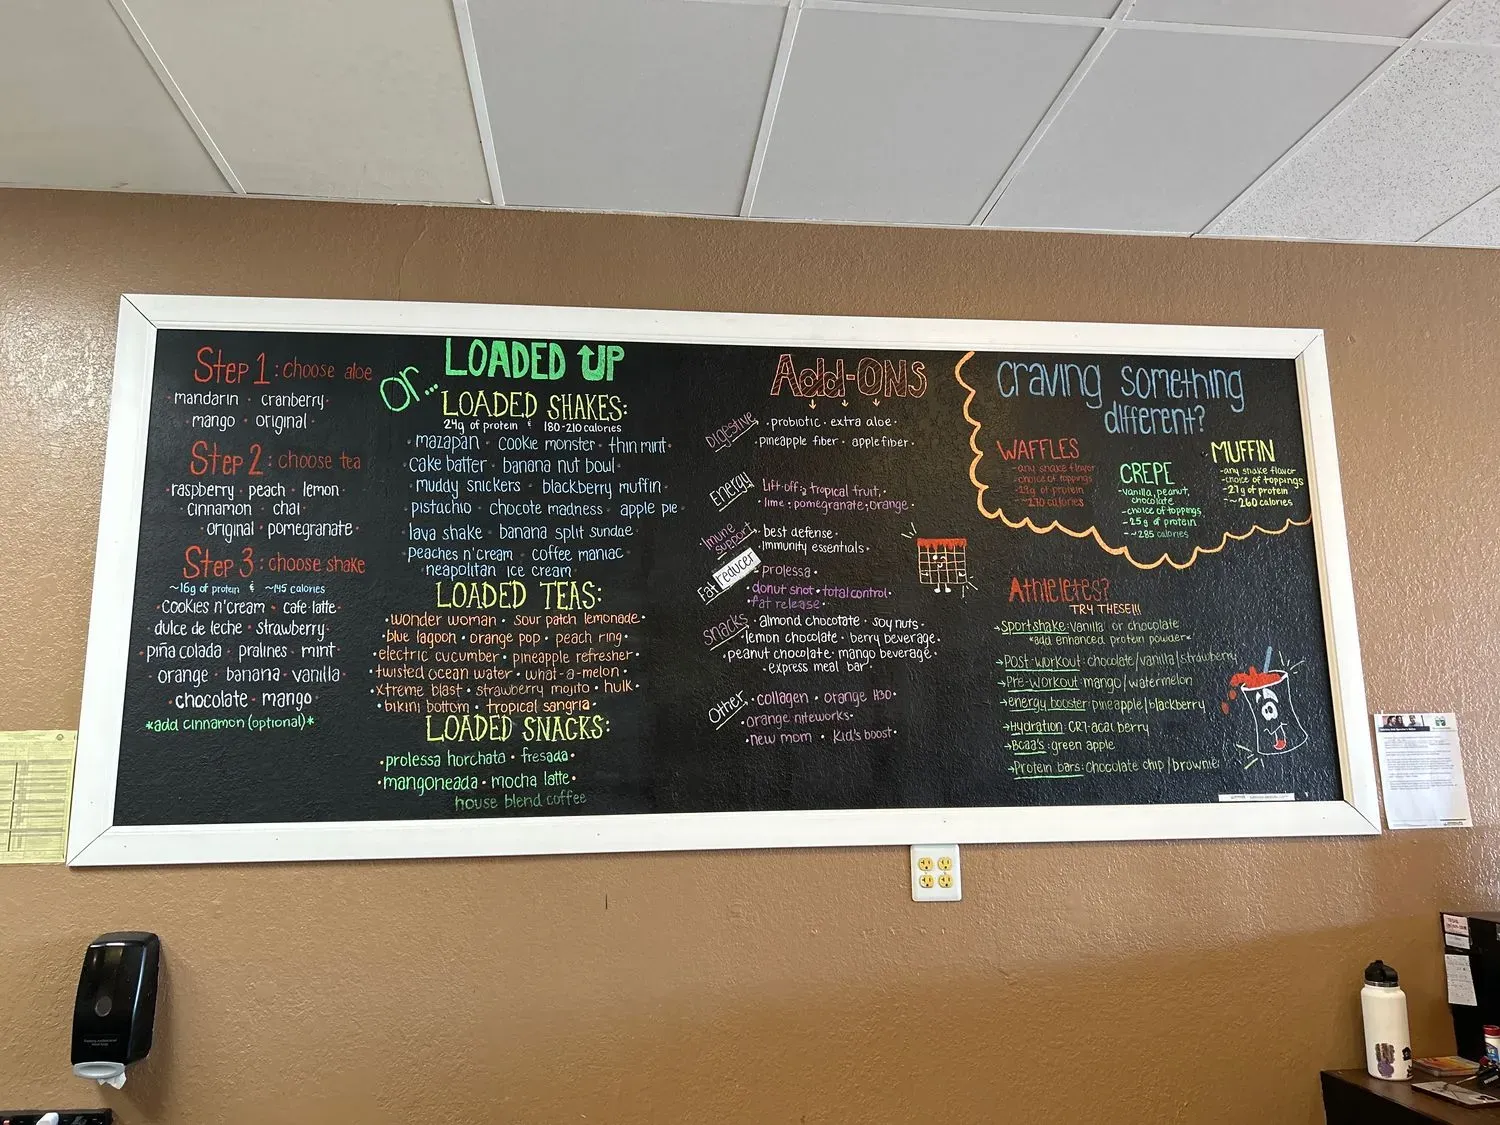 Step 1: choose aloe
mandarin · cranberry·
mango · original·
Step 2: choose tea
raspberry · peach · lemon·
cinnamon · chai·
original · pomegranate·
Step 3: choose shake
~16g of protein & ~145 calories
cookies n'cream · cafe latte·
dulce de leche · strawberry·
piña colada · pralines · mint·
orange · banana · vanilla·
chocolate · mango
*add cinnamon (optional)*
or...
LOADED UP
LOADED SHAKES:
24g of protein & 180-210 calories
mazapan · cookie monster · thin mint·
cake batter · banana nut bowl·
muddy snickers · blackberry muffin·
pistachio · chocote madness · apple pie·
lava shake · banana split sundae
peaches n'cream · coffee maniac·
neapolitan ice cream·
LOADED TEAS:
·wonder woman · sour patch lemonade·
·blue lagoon · orange pop · peach ring·
·electric cucumber · pineapple refresher·
·twisted ocean water · what-a-melon·
·xtreme blast · strawberry mojito · hulk·
·bikini bottom · tropical sangria·
LOADED SNACKS:
·prolessa horchata · fresada·
·mangoneada · mocha latte·
house blend coffee
Add-ONS
Digestive
·probiotic · extra aloe·
·pineapple fiber · apple fiber·
Energy
Lift-off: tropical fruit,·
·lime · pomegranate, orange·
Imune support
·best defense·
·immunity essentials·
Fat reducer
·prolessa·
·donut shot · total control·
·fat release·
Snacks
·almond chocotate · soy nuts·
·lemon chocolate · berry beverage·
·peanut chocolate · mango beverage·
·express meal bar·
Other
·collagen · orange H30·
·orange niteworks·
·new mom · Kid's boost·
craving something
different?
WAFFLES
-any shake flavor
-choice of toppings
CREPE
-vanilla, peanut,
chocolate
-choice of toppings
-25g of protein
-~285 calories
MUFFIN
-any shake flavor
-choice of toppings
-27g of protein
-~260 calories
Athletetes?
TRY THESE!!!
→Sportshake: vanilla or chocolate
*add enhanced protein powder*
→Post-workout: chocolate/vanilla/strawberry
→Pre-workout: mango/watermelon
→energy booster: pineapple/blackberry
→Hydration: CR7-acai berry
→Bcaa's: green apple
→Protein bars: chocolate chip/brownie